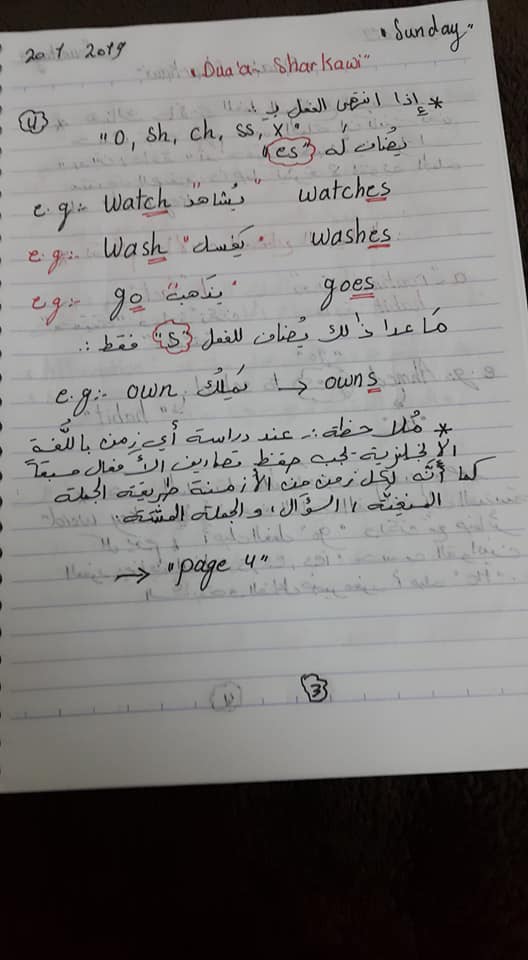 • Sunday"
20.1 2019
• Dua'a Sharkawi"
④
* إذا انتهى الفعل بـِ :
"o, sh, ch, ss, x"
يُضاف له "es"
e.g:- watch "يُشاهد" watches
e.g:- wash "يغسل" washes
eg:- go "يذهب" goes
مَا عدا ذلك يُضاف للفعل "s" فقط :.
e.g:- own يَملِك → owns
* مُلاحظة :. عند دراسة أي زمن باللُّغة
الإنجليزية يجب حفظ تصاريف الأفعال مسبقاً
كما أنَّه لكل زمن من الأزمنة طريقته الجملة
المنفيّة، السؤال، والجملة المثبتة.
→ "page 4"
3